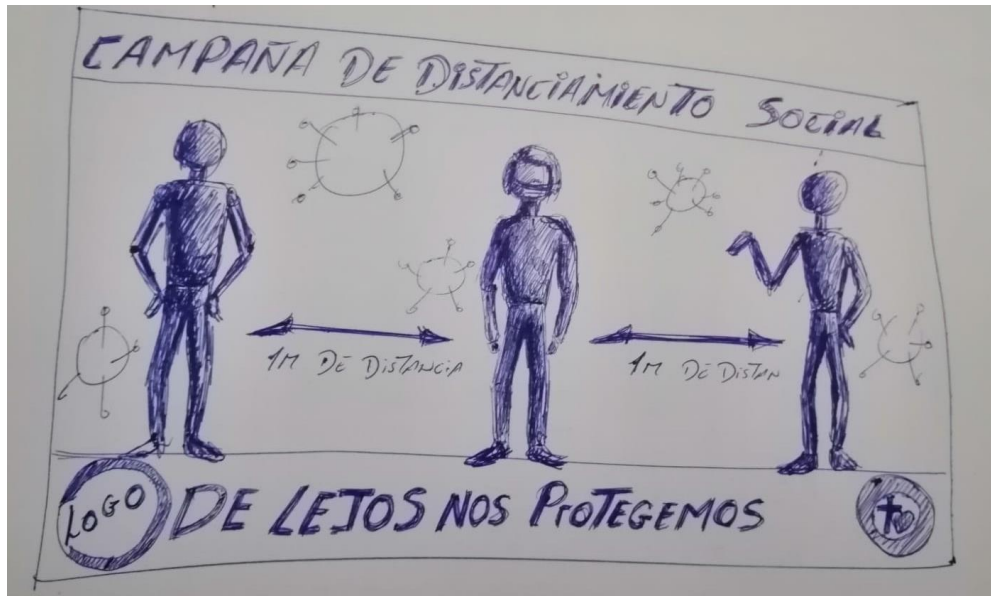 CAMPAÑA DE DISTANCIAMIENTO SOCIAL
1M DE DISTANCIA
1M DE DISTAN
LOGO
DE LEJOS NOS PROTEGEMOS